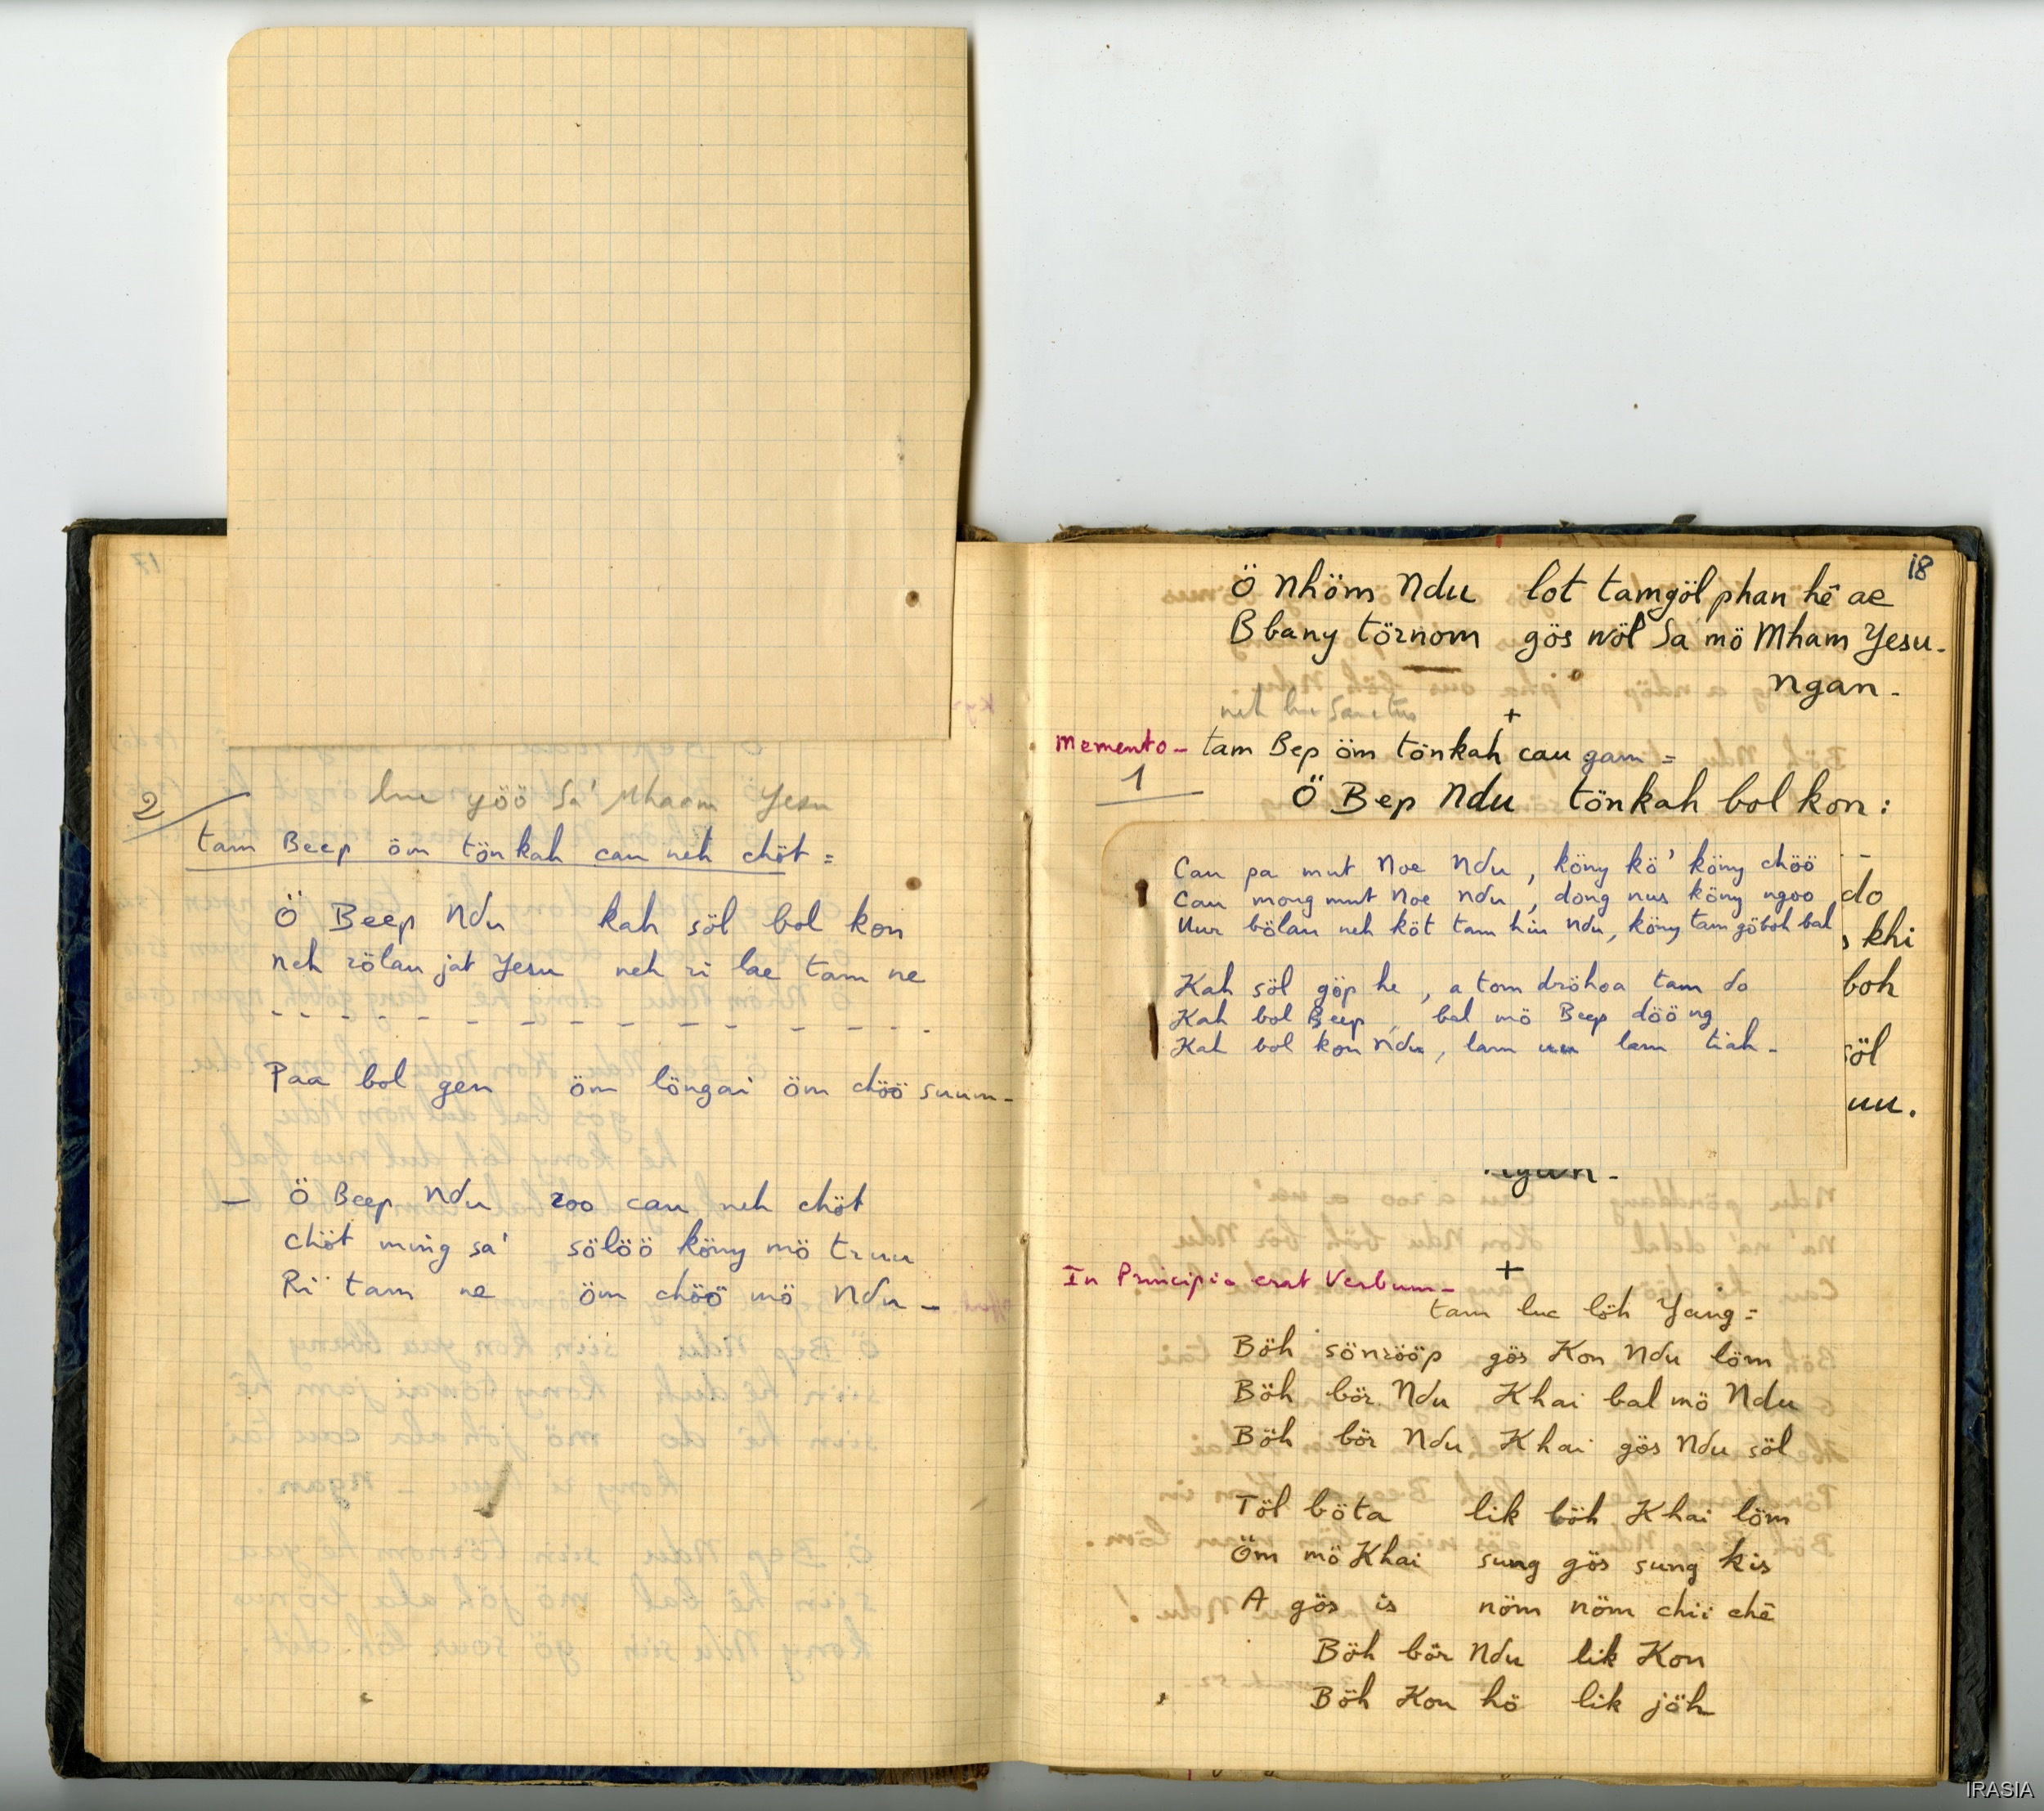 2
luc yöö Sa' Mhaam Yesu
tam Beep öm tönkah cau neh chöt =
Ö Beep Ndu kah söl bol kon
neh rölau jat Yesu neh ri lae tam ne
- - - - - - - - - - - - - -
Paa bol gen öm löngai öm chöö suum -
- Ö Beep Ndu roo cau neh chöt
chöt ming sa' sölöö köny mö truu
Ri tam ne öm chöö mö Ndu -
18
Ö Nhöm Ndu lot tamgöl phan hê ae
Bbany törnom gös wöl Sa' mö Mham Yesu -
ngan -
neh luc Sanctus
+
Memento - tam Bep öm tönkah cau gam =
1
Ö Bep Ndu tönkah bol kon :
Cau pa mut Noe Ndu, köny kö' köny chöö
Cau mong mut Noe Ndu, dong nus köny ngoo
Uur bölau neh köt tam hiu Ndu, köny tam göboh bal
Kah söl göp he, a tom dröhoa tam do
Kah bol Beep, bal mö Beep döö ng
Kah bol kon Ndu, lam uu lam tiah -
do
khi
boh
söl
uu.
ngan -
+
In Principio erat Verbum -
tam luc löh Yang =
Böh sönrööp gös Kon Ndu löm
Böh bör Ndu Khai bal mö Ndu
Böh bör Ndu Khai gös Ndu söl
Töl böta lik böh Khai löm
Öm mö Khai sung gös sung kis
A gös is nöm nöm chii chê
Böh bör Ndu lik Kon
Böh Kon hö lik jöh
IRASIA